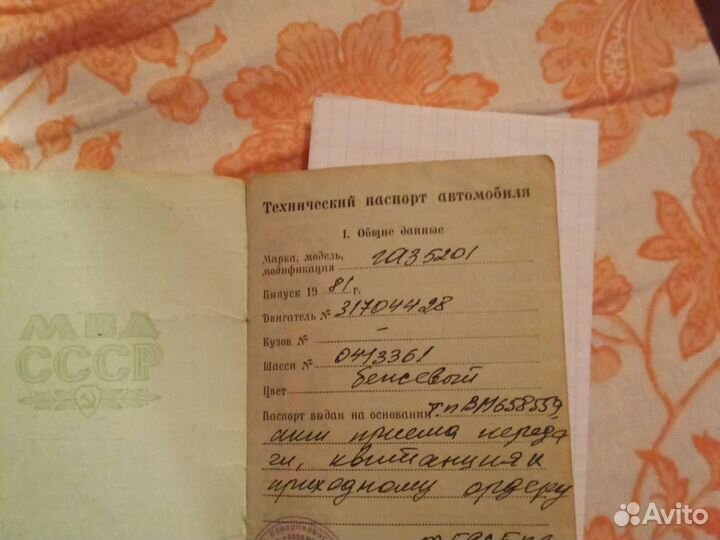 МВД
СССР
Технический паспорт автомобиля
I. Общие данные
Марка, модель,
модификация газ 5201
Выпуск 19 81 г.
Двигатель № 31704428
Кузов № –
Шасси № 0413361
Цвет бежевый
Паспорт выдан на основании т.п ВМ 658559
акт приема переда
чи, квитанция к
приходному ордеру
Avito